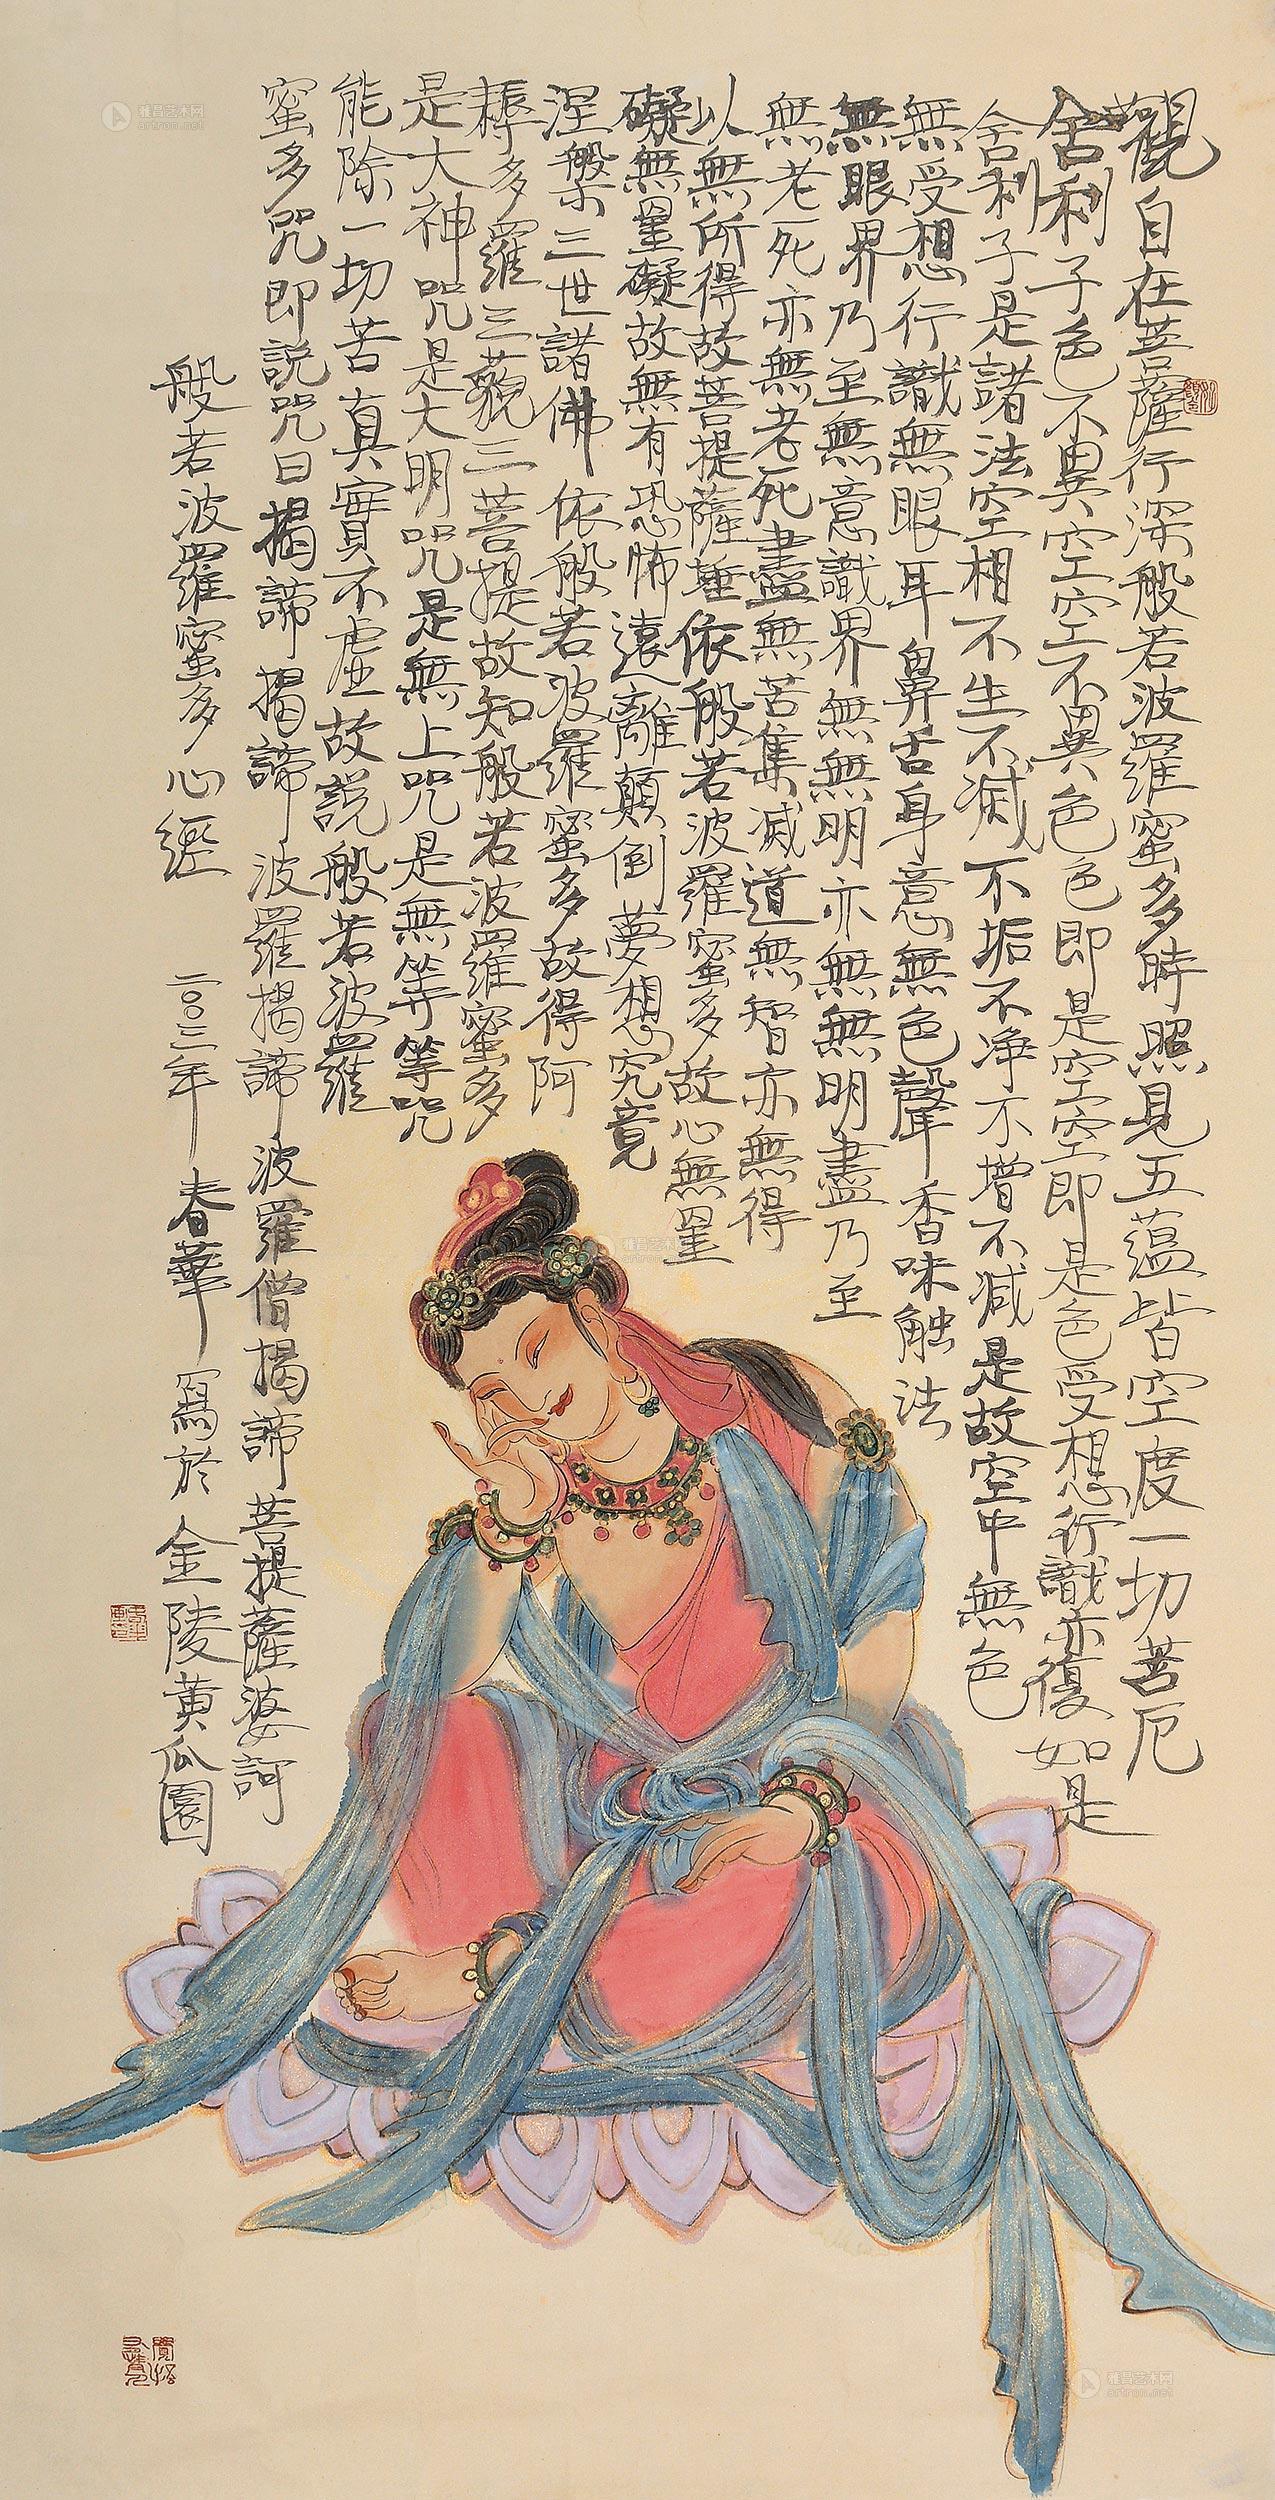 觀自在菩薩行深般若波羅蜜多時照見五蘊皆空度一切苦厄
舍利子色不異空空不異色色即是空空即是色受想行識亦復如是
舍利子是諸法空相不生不滅不垢不净不增不減是故空中無色
無受想行識無眼耳鼻舌身意無色聲香味觸法
無眼界乃至無意識界無無明亦無無明盡乃至
無老死亦無老死盡無苦集滅道無智亦無得
以無所得故菩提薩埵依般若波羅蜜多故心無罣
礙無罣礙故無有恐怖遠離顛倒夢想究竟
涅槃三世諸佛依般若波羅蜜多故得阿
耨多羅三藐三菩提故知般若波羅蜜多
是大神咒是大明咒是無上咒是無等等咒
能除一切苦真實不虛故説般若波羅
蜜多咒即説咒曰揭諦揭諦波羅揭諦波羅僧揭諦菩提薩婆訶
般若波羅蜜多心經 二〇〇三年春華寫於金陵黄瓜園
雅昌艺术网
artron.net
雅昌艺术网
artron.net
雅昌艺术网
artron.net